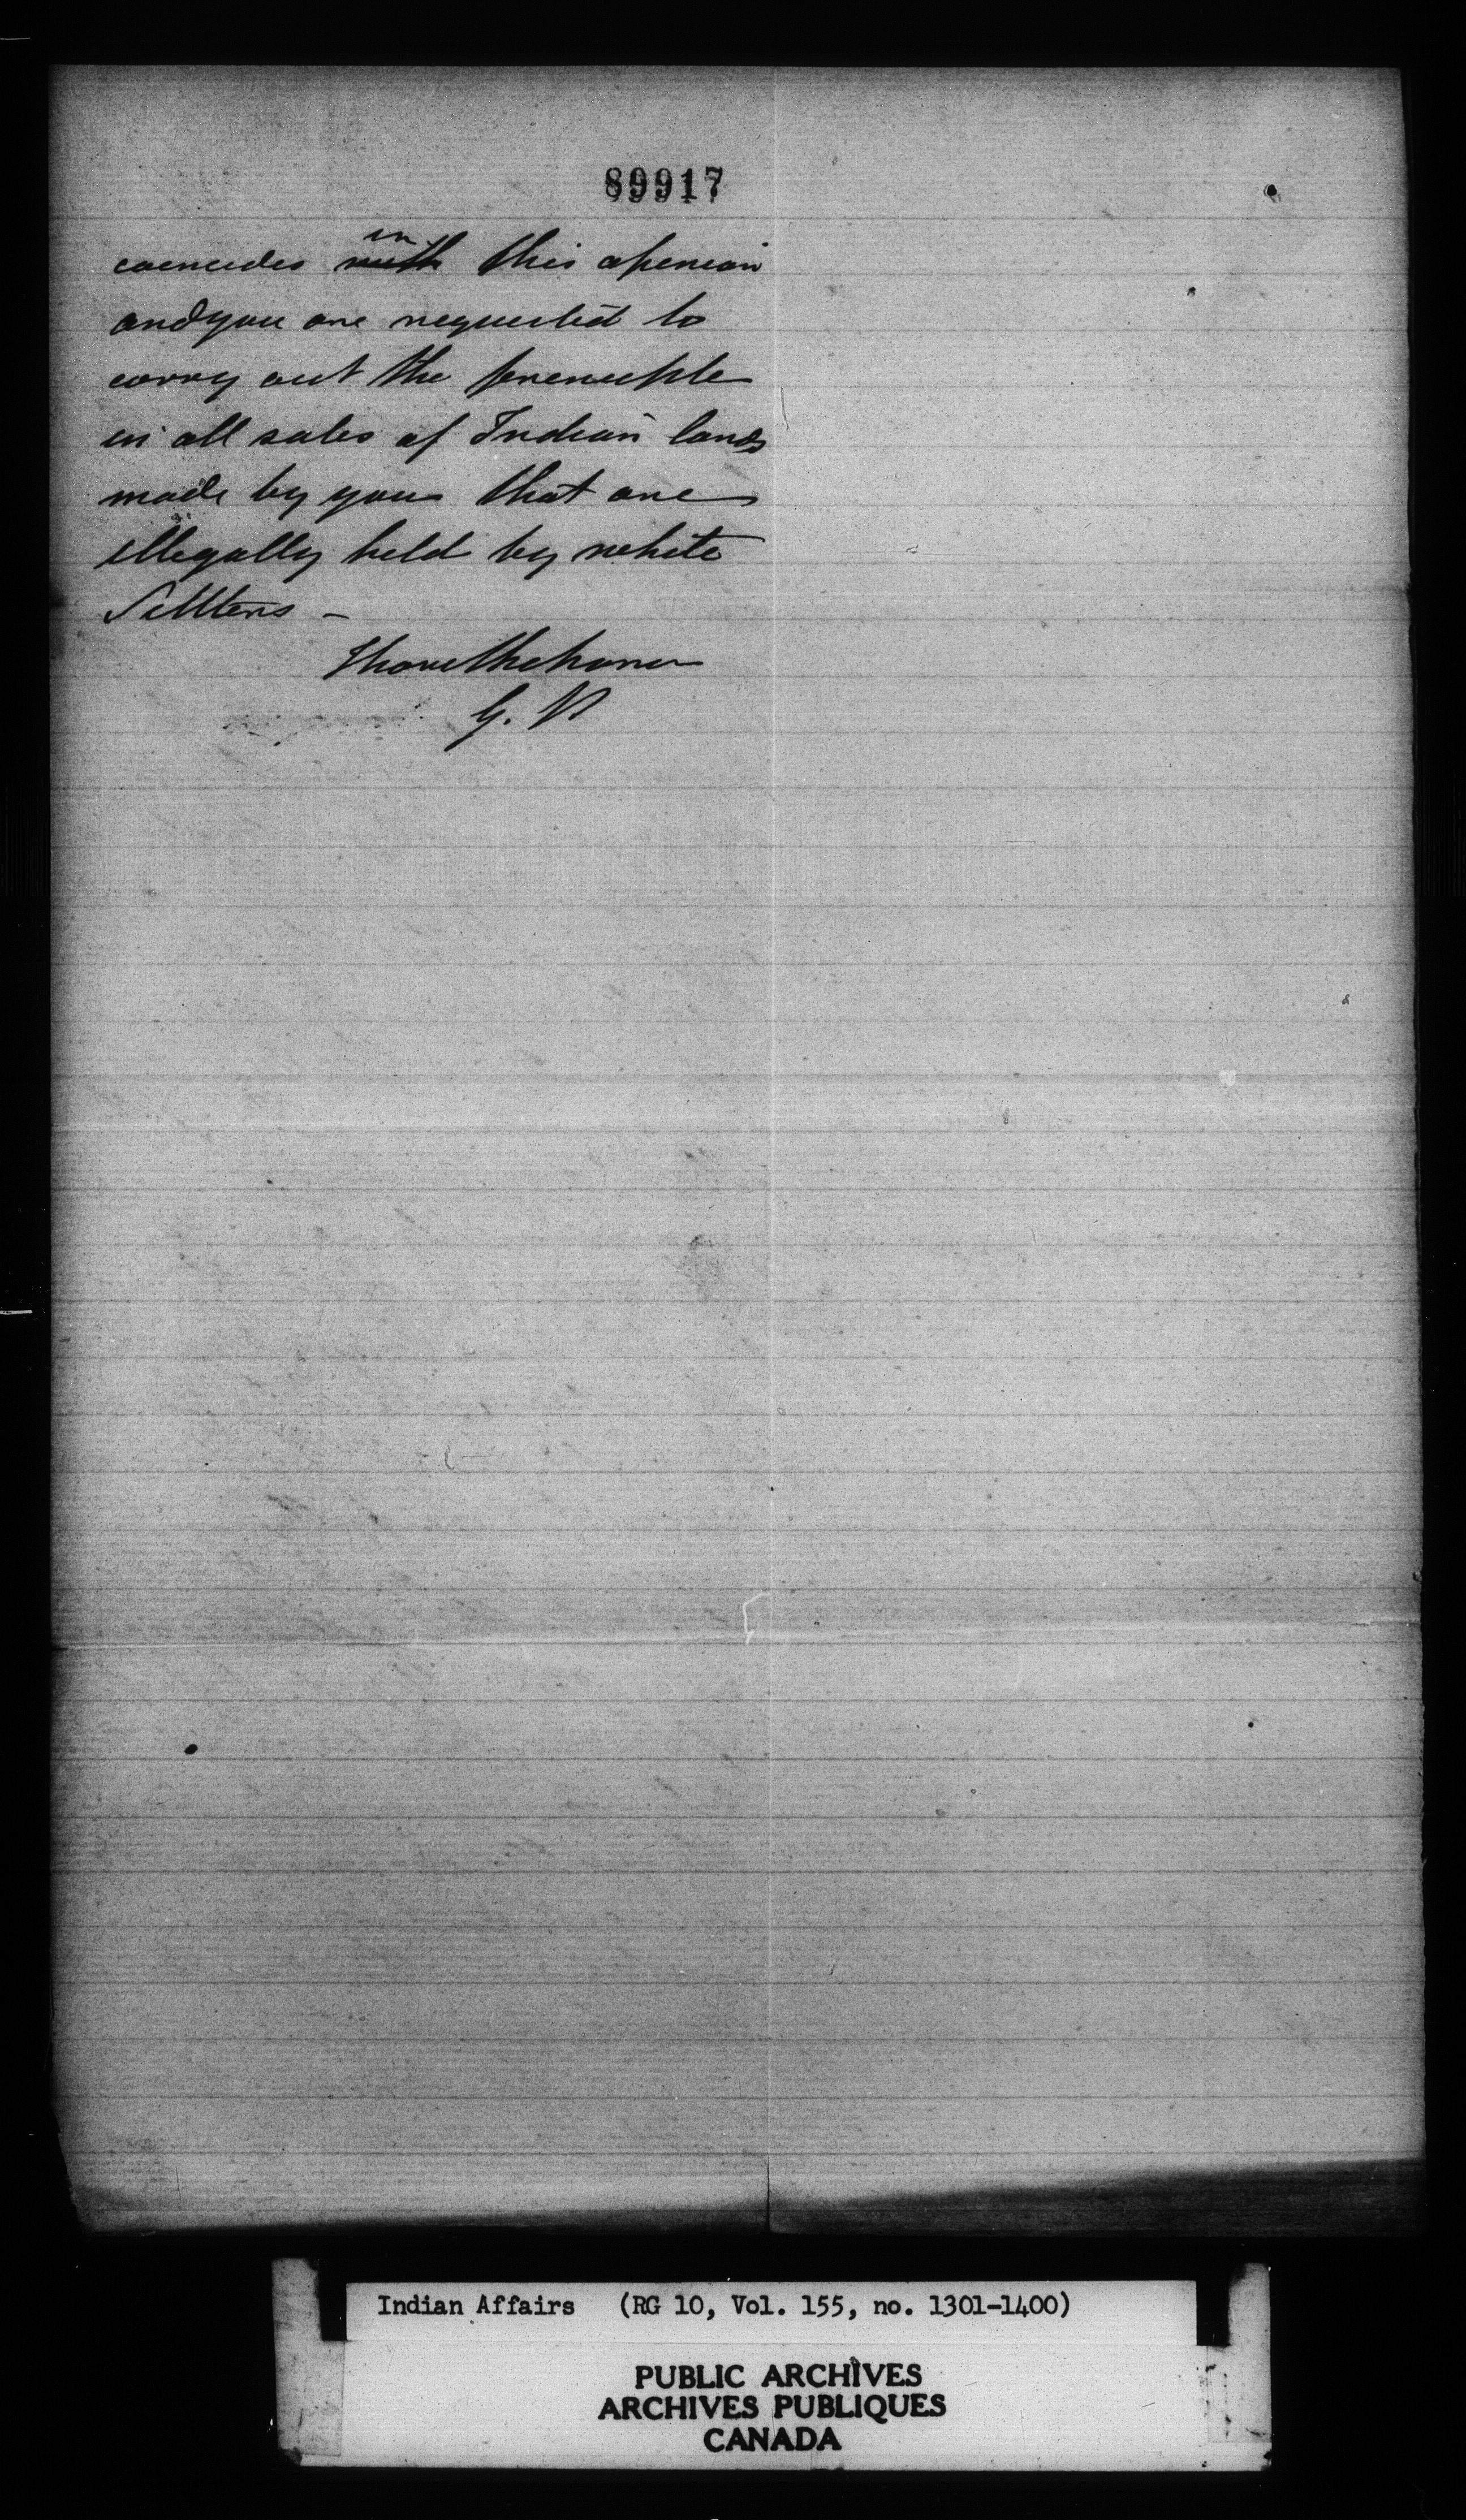 89917
in
coincides with this opinion
and you are requested to
carry out the principle
in all sales of Indian lands
made by you that are
illegally held by white
Settlers –
I have the honor
G. V
Indian Affairs (RG 10, Vol. 155, no. 1301-1400)
PUBLIC ARCHIVES
ARCHIVES PUBLIQUES
CANADA